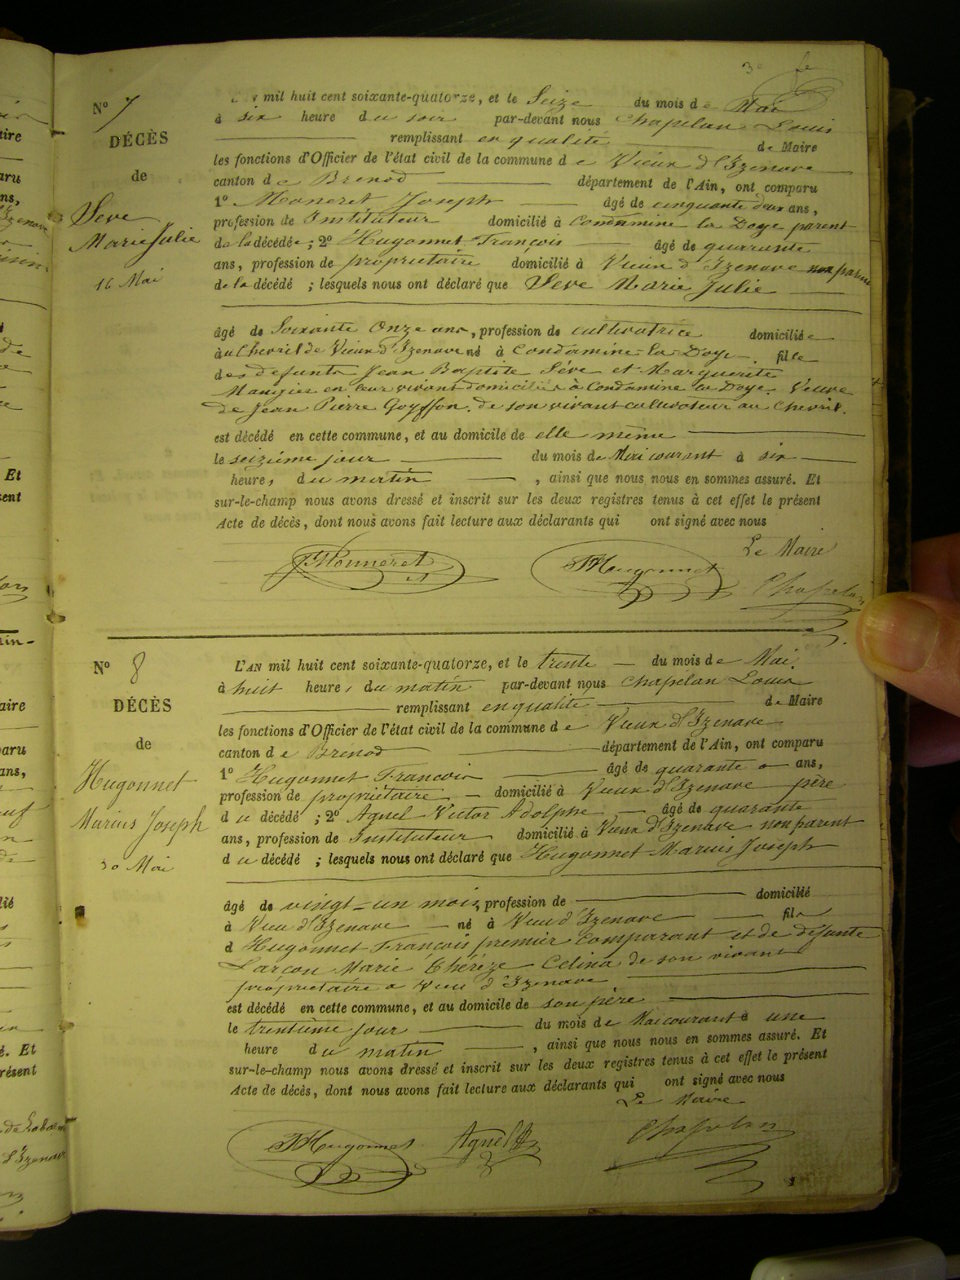 N° 7
DÉCÈS
de
Seve
Marie Julie
16 Mai
mil huit cent soixante-quatorze, et le Seize du mois de Mai
à six heure du soir par-devant nous Chapelan Louis
remplissant en qualité de Maire
les fonctions d'Officier de l'état civil de la commune de Vieux d'Izenave
canton de Brenod département de l'Ain, ont comparu
1° Moneret Joseph âgé de cinquante deux ans,
profession de Instituteur domicilié à Condamine la Doye parent
de la décédée ; 2° Hugonnet François âgé de quarante
ans, profession de propriétaire domicilié à Vieux d'Izenave non parent
de la décédé ; lesquels nous ont déclaré que Seve Marie Julie
âgé de Soixante Onze ans, profession de cultivatrice domiciliée
au Chevril de Vieux d'Izenave né à Condamine-la-Doye fille
des defunts Jean Baptiste Séve et Marguerite
Mangier en leur vivant domiciliés à Condamine la Doye. Veuve
de Jean Pierre Goyffon, de son vivant cultivateur au Chevril.
est décédé en cette commune, et au domicile de elle même
le seizième jour du mois de Mai courant à six
heures du matin , ainsi que nous nous en sommes assuré. Et
sur-le-champ nous avons dressé et inscrit sur les deux registres tenus à cet effet le présent
Acte de décès, dont nous avons fait lecture aux déclarants qui ont signé avec nous
Le Maire
JMonneret FHugonnet Chapelan
N° 8
DÉCÈS
de
Hugonnet
Marius Joseph
30 Mai
L'AN mil huit cent soixante-quatorze, et le trente du mois de Mai
à huit heures du matin par-devant nous Chapelan Louis
remplissant en qualité de Maire
les fonctions d'Officier de l'état civil de la commune de Vieux d'Izenave
canton de Brenod département de l'Ain, ont comparu
1° Hugonnet Francois âgé de quarante ans,
profession de propriétaire domicilié à Vieux d'Izenave père
du décédé ; 2° Aguel Victor Adolphe âgé de quarante
ans, profession de Instituteur domicilié à Vieux d'Izenave non parent
du décédé ; lesquels nous ont déclaré que Hugonnet Marius Joseph
âgé de vingt-un mois, profession de domicilié
à Vieu d'Izenave né à Vieu d'Izenave fils
d Hugonnet François premier comparant et de défunte
Larçon Marie Thérèze Celina de son vivant
propriétaire a Vieu d'Izenave
est décédé en cette commune, et au domicile de son père
le trentième jour du mois de Mai courant à une
heure du matin , ainsi que nous nous en sommes assuré. Et
sur-le-champ nous avons dressé et inscrit sur les deux registres tenus à cet effet le présent
Acte de décès, dont nous avons fait lecture aux déclarants qui ont signé avec nous
Le Maire
FHugonnet Aguel Chapelan